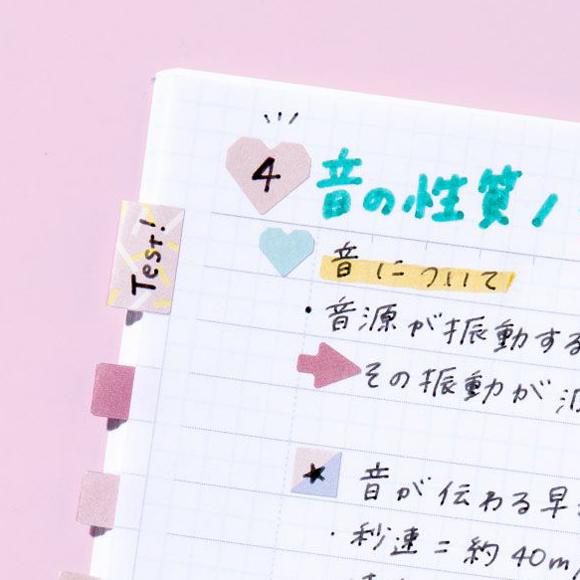 4 音の性質!
Test!
音について
・音源が振動する
その振動が
★ 音が伝わる早
・秒速=約40m/